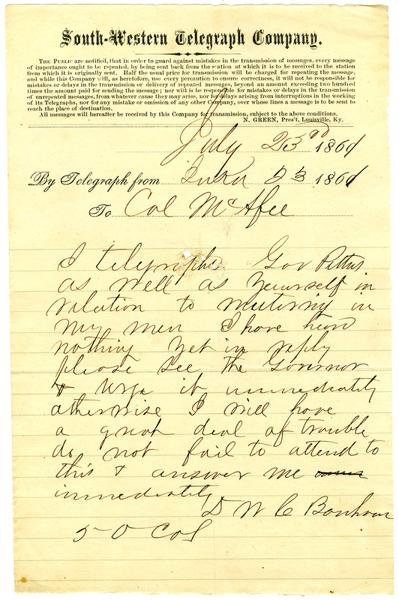 South-Western Telegraph Company.
THE PUBLIC are notified, that in order to guard against mistakes in the transmission of messages, every message
of importance ought to be repeated, by being sent back from the station at which it is to be received to the station
from which it is originally sent. Half the usual price for transmission will be charged for repeating the message,
and while this Company will, as heretofore, use every precaution to ensure correctness, it will not be responsible for
mistakes or delays in the transmission or delivery of repeated messages, beyond an amount exceeding two hundred
times the amount paid for sending the message; nor will is be responsible for mistakes or delays in the transmission
of unrepeated messages, from whatever cause they may arise, nor for delays arising from interruptions in the working
of its Telegraphs, nor for any mistake or omission of any other Company, over whose lines a message is to be sent to
reach the place of destination.
All messages will hereafter be received by this Company for transmission, subject to the above conditions.
N. GREEN, Pres't, Louisville, Ky.
July 23rd 1861
By Telegraph from Iuka 23 1861
To Col McAfee
I telegraphed Gov Pettus
as well as yourself in
relation to mustering in
my men I have heard
nothing yet in reply
please see the Governor
& urge it immediately
otherwise I will have
a great deal of trouble
do not fail to attend to
this & answer me
immediately
D W C Bonham
50 Col